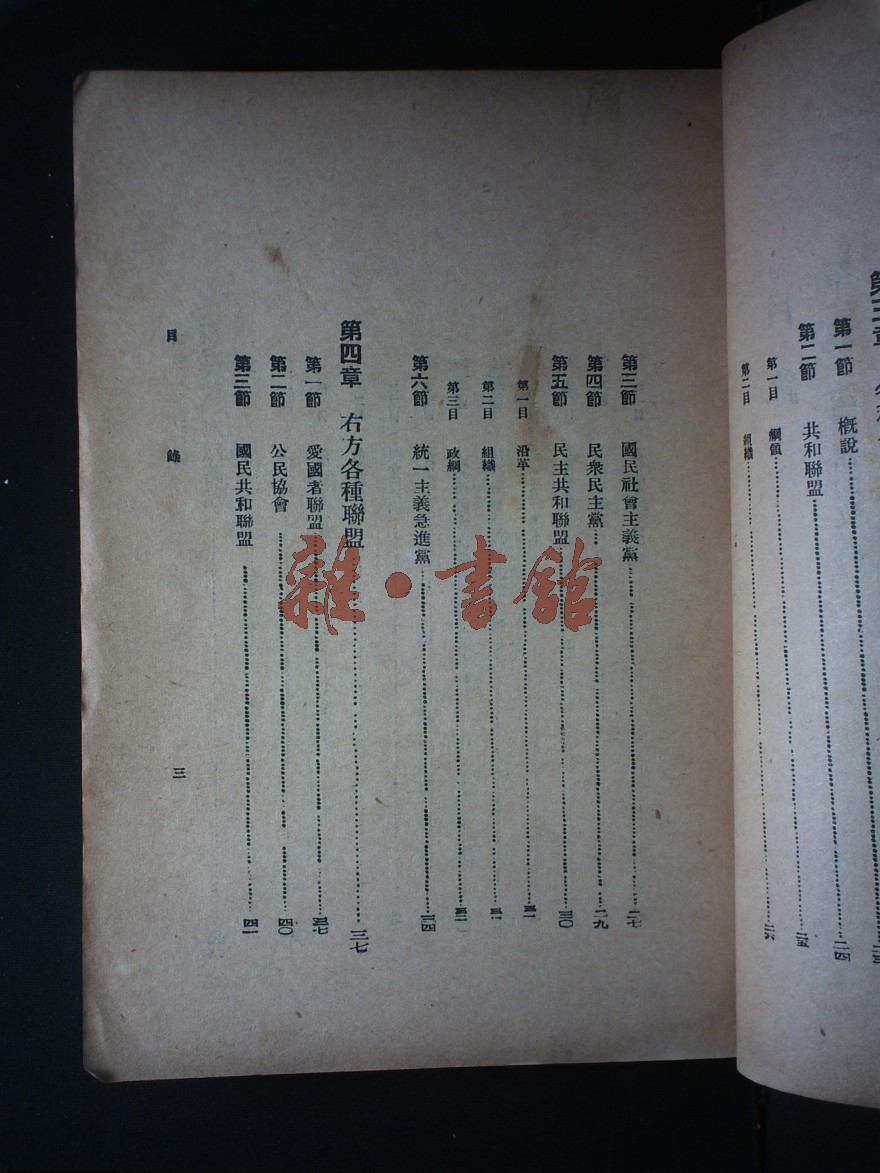 第三章
第一節 概說 二四
第二節 共和聯盟 二五
第一目 綱領
第二目 組織 二六
第三節 國民社會主義黨 二七
第四節 民衆民主黨 二九
第五節 民主共和聯盟 三〇
第一目 沿革 三一
第二目 組織 三一
第三目 政綱 三二
第六節 統一主義急進黨 三四
第四章 右方各種聯盟 三七
第一節 愛國者聯盟 三七
第二節 公民協會 四〇
第三節 國民共和聯盟 四一
目錄 三
雜·書館